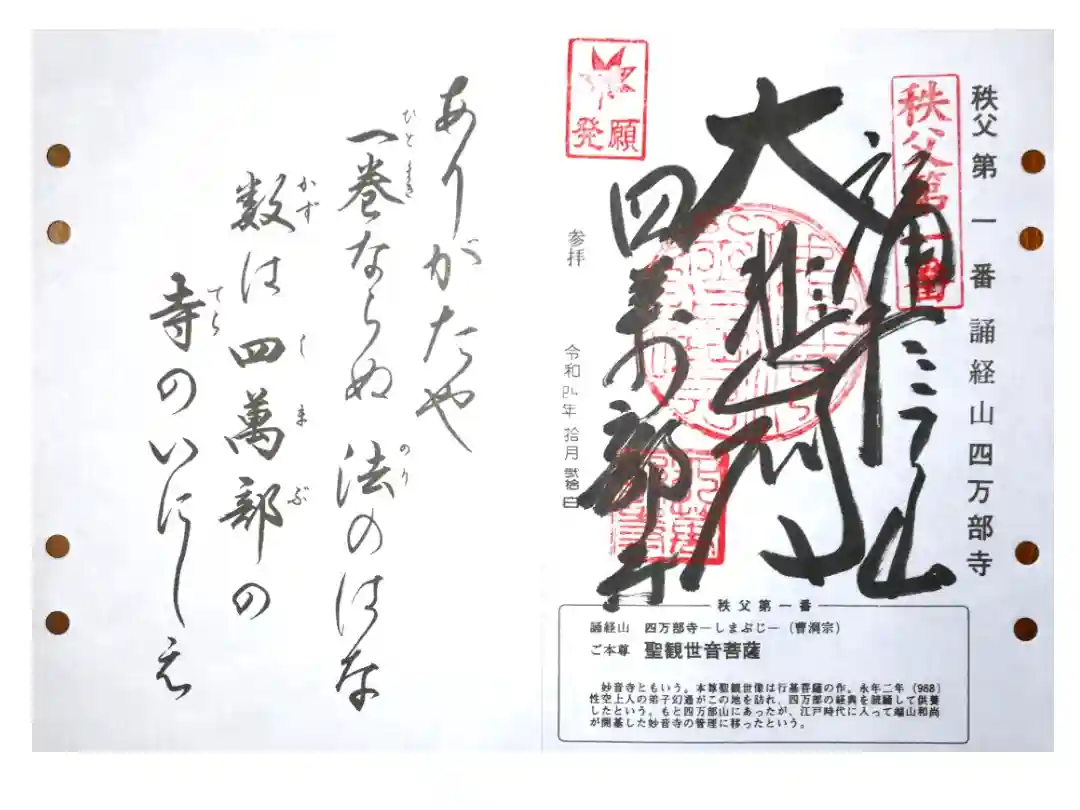 秩父第一番誦経山四万部寺
秩父第一番
誦経山
大悲閣
四萬部寺
発願
参拝
令和四年拾月弐拾日
秩父第一番
誦経山 四万部寺−しまぶじ−（曹洞宗）
ご本尊 聖観世音菩薩
妙音寺ともいう。本尊聖観世像は行基菩薩の作。永年二年（988）
性空上人の弟子幻通がこの地を訪れ、四万部の経典を読誦して供養
したという。もと四万部山にあったが、江戸時代に入って端山和尚
が開基した妙音寺の管理に移ったという。
ありがたや
一巻ならぬ 法のはな
ひとまき
のり
数は四萬部の
かず
しまぶ
寺のいにしえ
てら